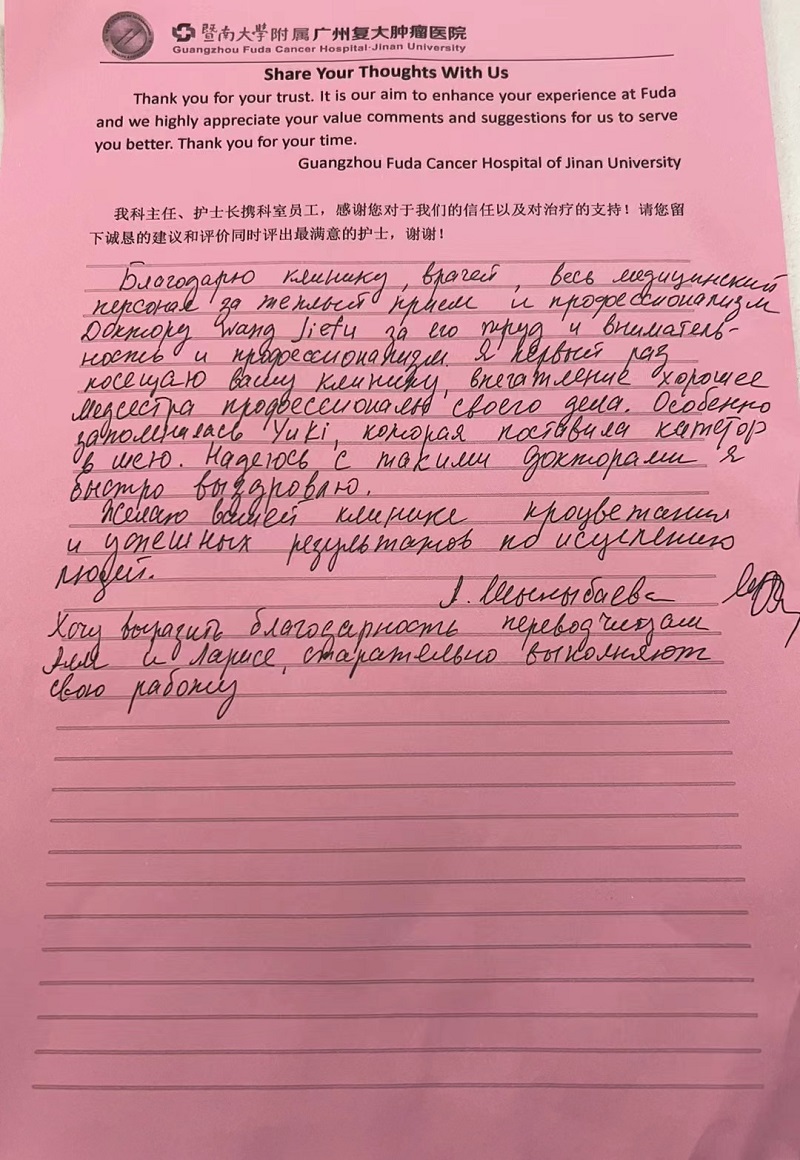 暨南大学附属广州复大肿瘤医院
Guangzhou Fuda Cancer Hospital·Jinan University
Share Your Thoughts With Us
Thank you for your trust. It is our aim to enhance your experience at Fuda
and we highly appreciate your value comments and suggestions for us to serve
you better. Thank you for your time.
Guangzhou Fuda Cancer Hospital of Jinan University
我科主任、护士长携科室员工，感谢您对于我们的信任以及对治疗的支持！请您留
下诚恳的建议和评价同时评出最满意的护士，谢谢！
Благодарю клинику, врачей, весь медицинский
персонал за теплый прием и профессионализм
Доктору Wang Jiefu за его труд и вниматель-
ность и профессионализм. Я первый раз
посещаю вашу клинику, впечатление хорошее
Медсестра профессионалы своего дела. Особенно
запомнилась Yuki, которая поставила катетор
в шею. Надеюсь с такими докторами я
быстро выздровлю.
Желаю вашей клинике процветания
и успешных результатов по исцелению
людей.
А. Шыныбаева
Хочу выразить благодарность переводчикам
Але и Ларисе, старательно выполняют
свою работу